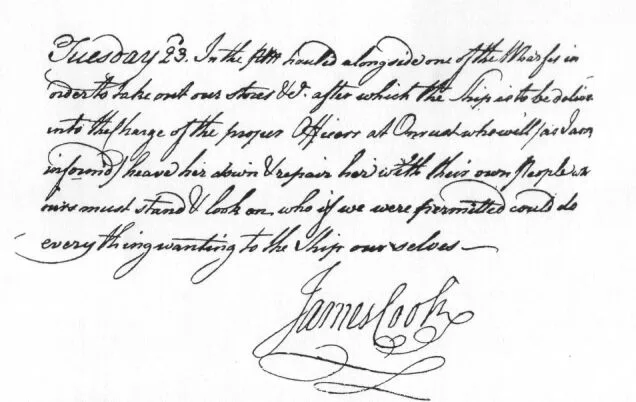 Tuesday 23. In the PM hauld alongside one of the Wharfes in
order to take out our stores &c. after which the Ship is to be deliver
into the Charge of the proper Officers at Onrust who will (as I am
inform'd) heave her down & repair her with their own People
ours must stand & look on who if we were permitted could do
every thing wanting to the Ship our selves —
James Cook